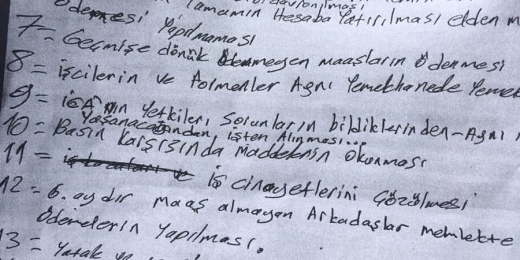 Tamamın Hesaba Yatırılması elden
Ödemesi Yapılmaması
7= Geçmişe dönük Ödenmeyen maaşların Ödenmesi
8= işcilerin ve Formenler Aynı Yemekhanede Yemek
9= İGA'nın Yetkileri Sorunların bildiklerinden-Aynı
Yaşanacağından, işten Alınması...
10= Basın Karşısında Maddelerin Okunması
11= iş cinayetlerini Çözülmesi
12= 6. aydır maaş almayan Arkadaşlar memlekte
Ödemelerin Yapılması.
13= Yatak